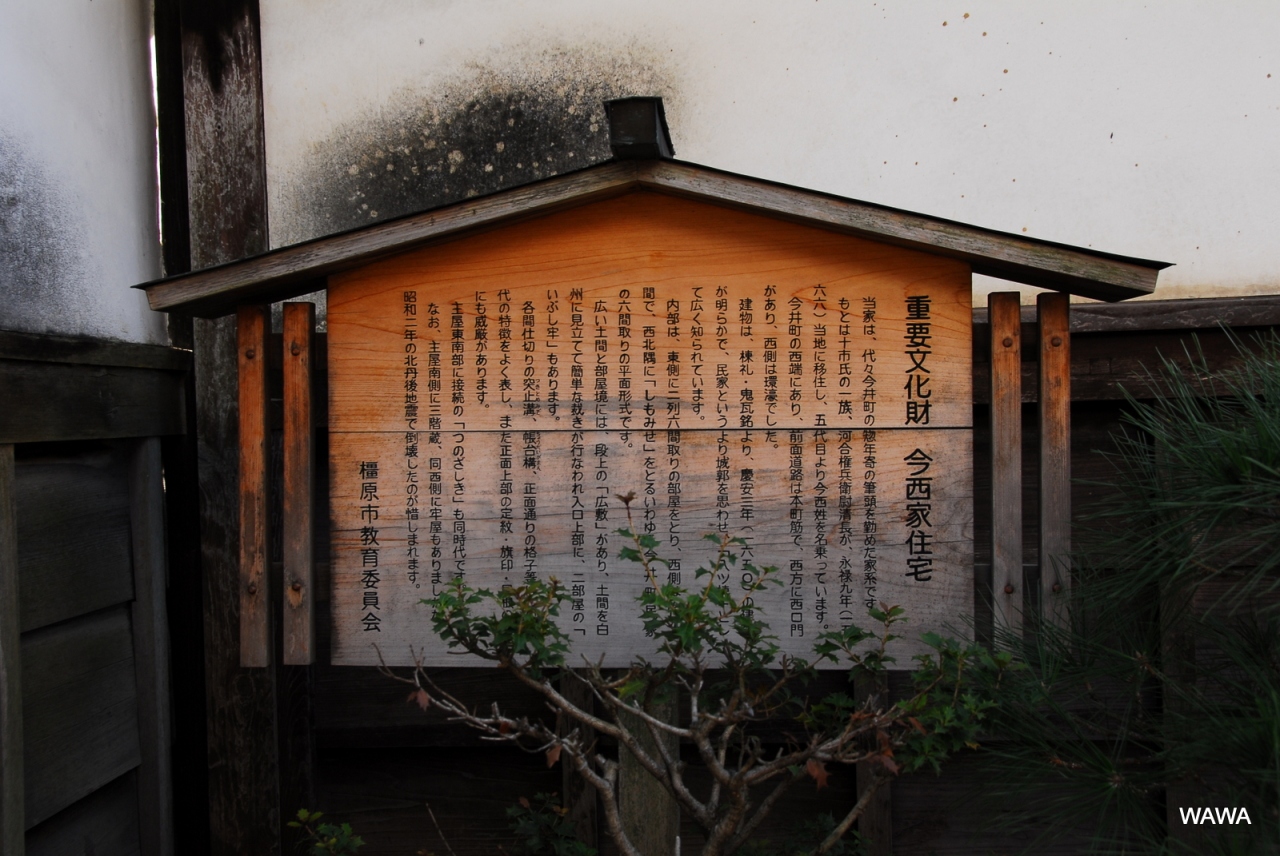 重要文化財 今西家住宅
当家は、代々今井町の惣年寄の筆頭を勤めた家系です
もとは十市氏の一族、河合権兵衛尉清長が、永禄九年(一五
六六)当地に移住し、五代目より今西姓を名乗っています。
今井町の西端にあり、前面道路は本町筋で、西方に西口門
があり、西側は環濠でした。
建物は、棟札・鬼瓦銘より、慶安三年(一六五〇)の
が明らかで、民家というより城郭を思わせ
て広く知られています。
内部は、東側に二列六間取りの部屋をとり、西側
間で、西北隅に「しもみせ」をとるいわゆ
の六間取りの平面形式です。
広い土間と部屋境には、段上の「広敷」があり、土間を白
州に見立てて簡単な裁きが行なわれ入口上部に、二部屋の「
いぶし牢」もあります。
各間仕切りの突止溝、帳台構、正面通りの格子
代の特徴をよく表し、また正面上部の定紋・旗印・
にも威厳があります。
主屋東南部に接続の「つのざしき」も同時代で
なお、主屋南側に三階蔵、同西側に牢屋もありまし
昭和二年の北丹後地震で倒壊したのが惜しまれます。
橿原市教育委員会
WAWA